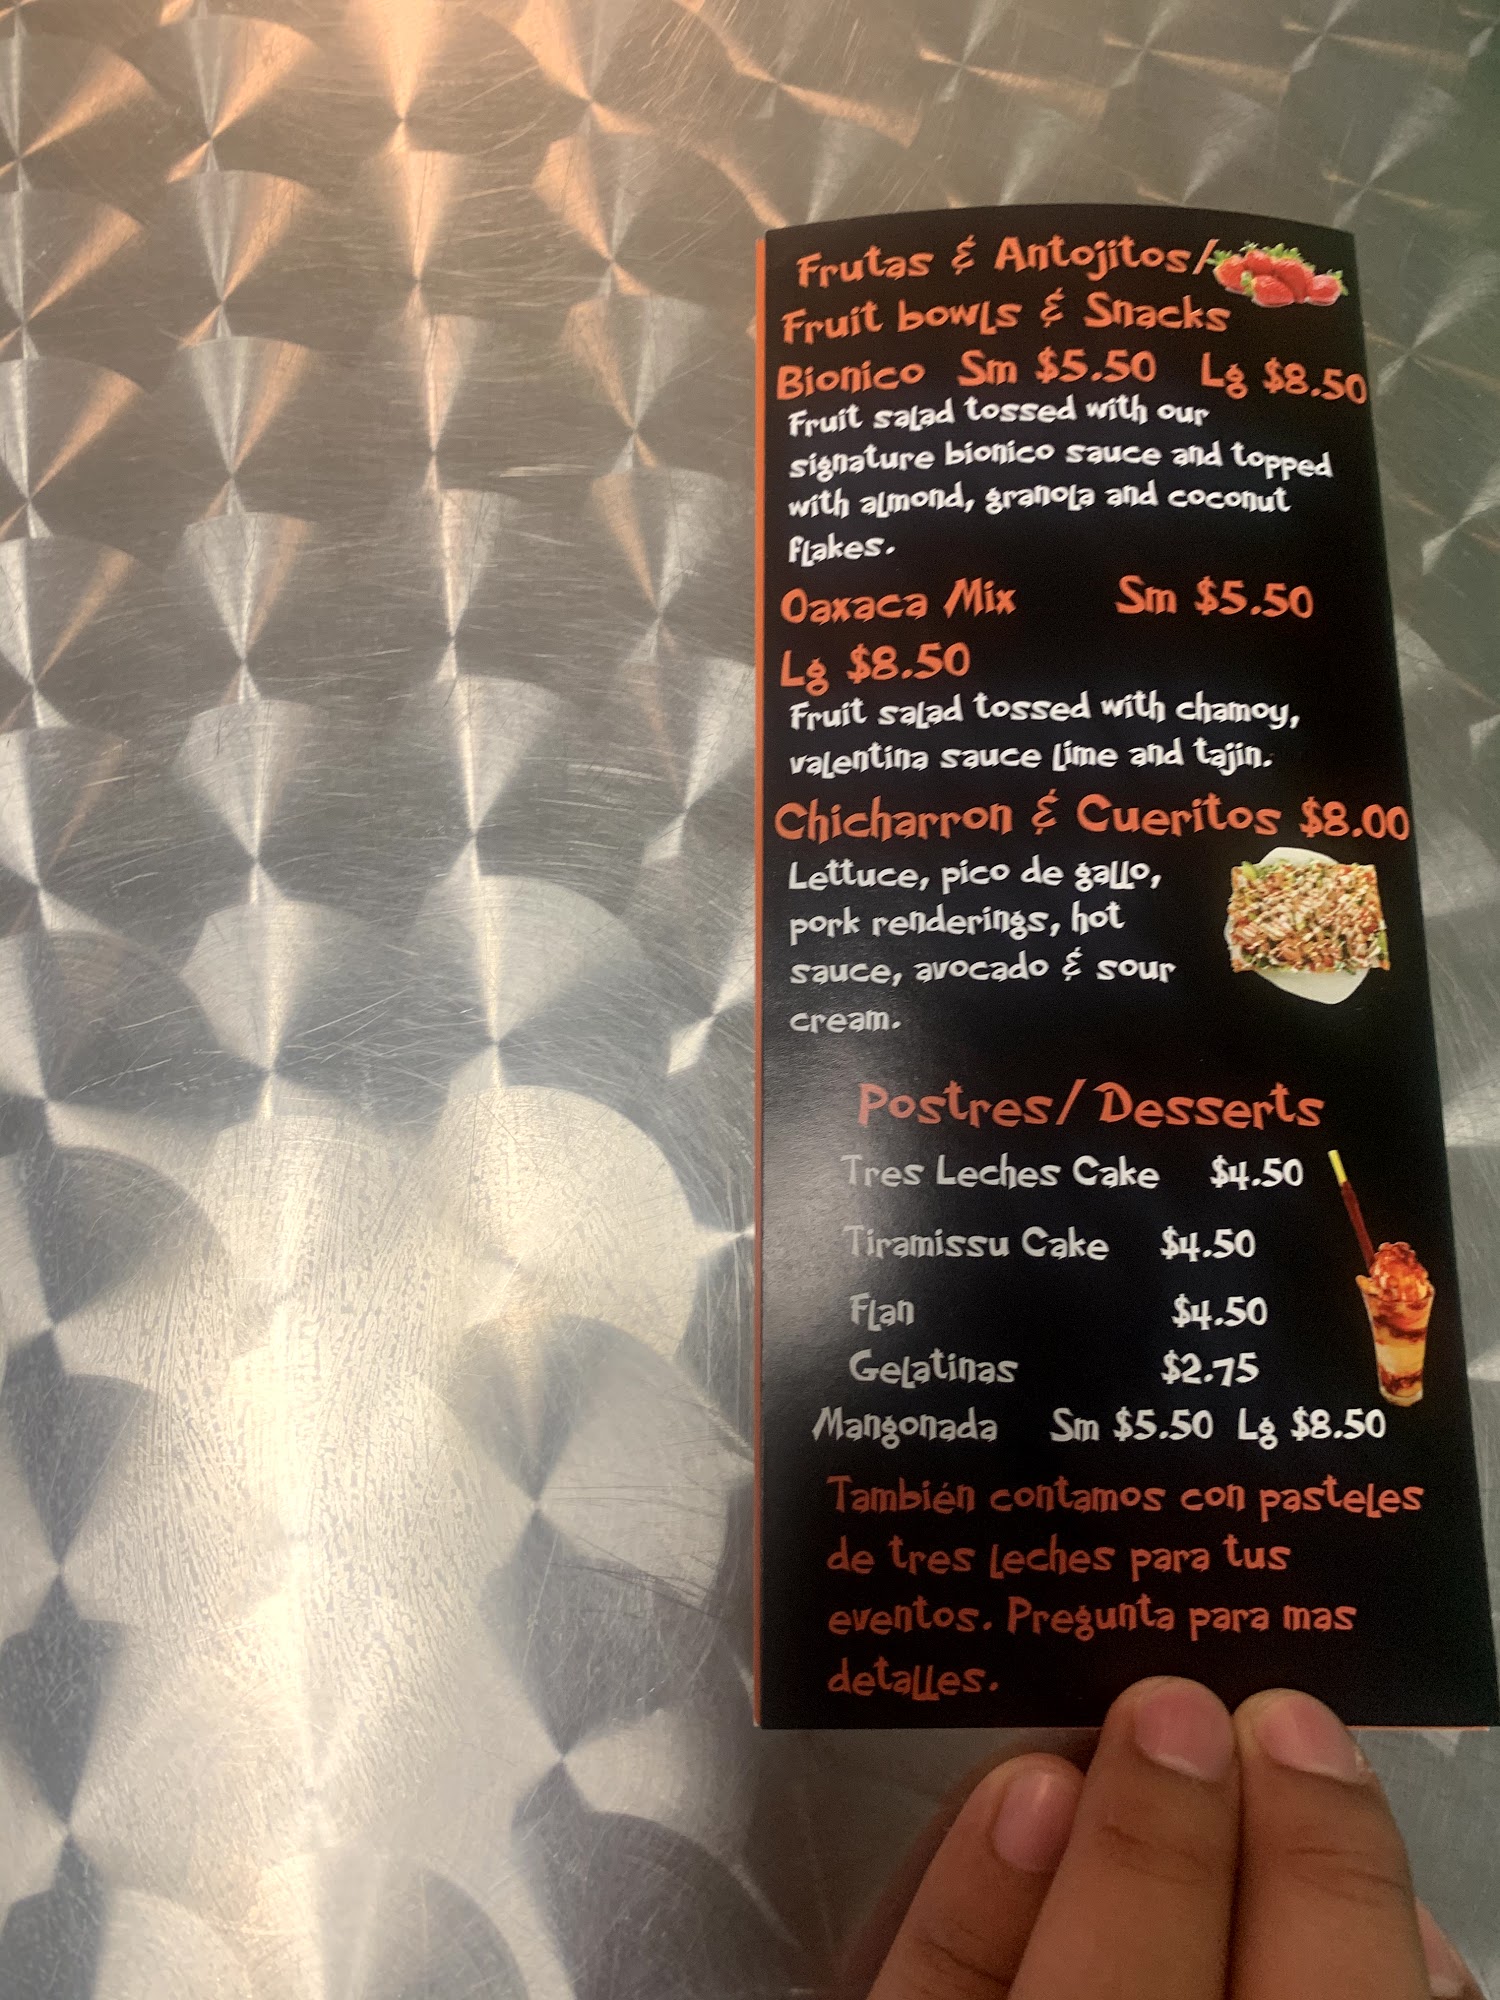 Frutas & Antojitos/
Fruit bowls & Snacks
Bionico Sm $5.50 Lg $8.50
Fruit salad tossed with our
signature bionico sauce and topped
with almond, granola and coconut
flakes.
Oaxaca Mix Sm $5.50
Lg $8.50
Fruit salad tossed with chamoy,
valentina sauce lime and tajin.
Chicharron & Cueritos $8.00
Lettuce, pico de gallo,
pork renderings, hot
sauce, avocado & sour
cream.
Postres/Desserts
Tres Leches Cake $4.50
Tiramissu Cake $4.50
Flan $4.50
Gelatinas $2.75
Mangonada Sm $5.50 Lg $8.50
También contamos con pasteles
de tres leches para tus
eventos. Pregunta para mas
detalles.